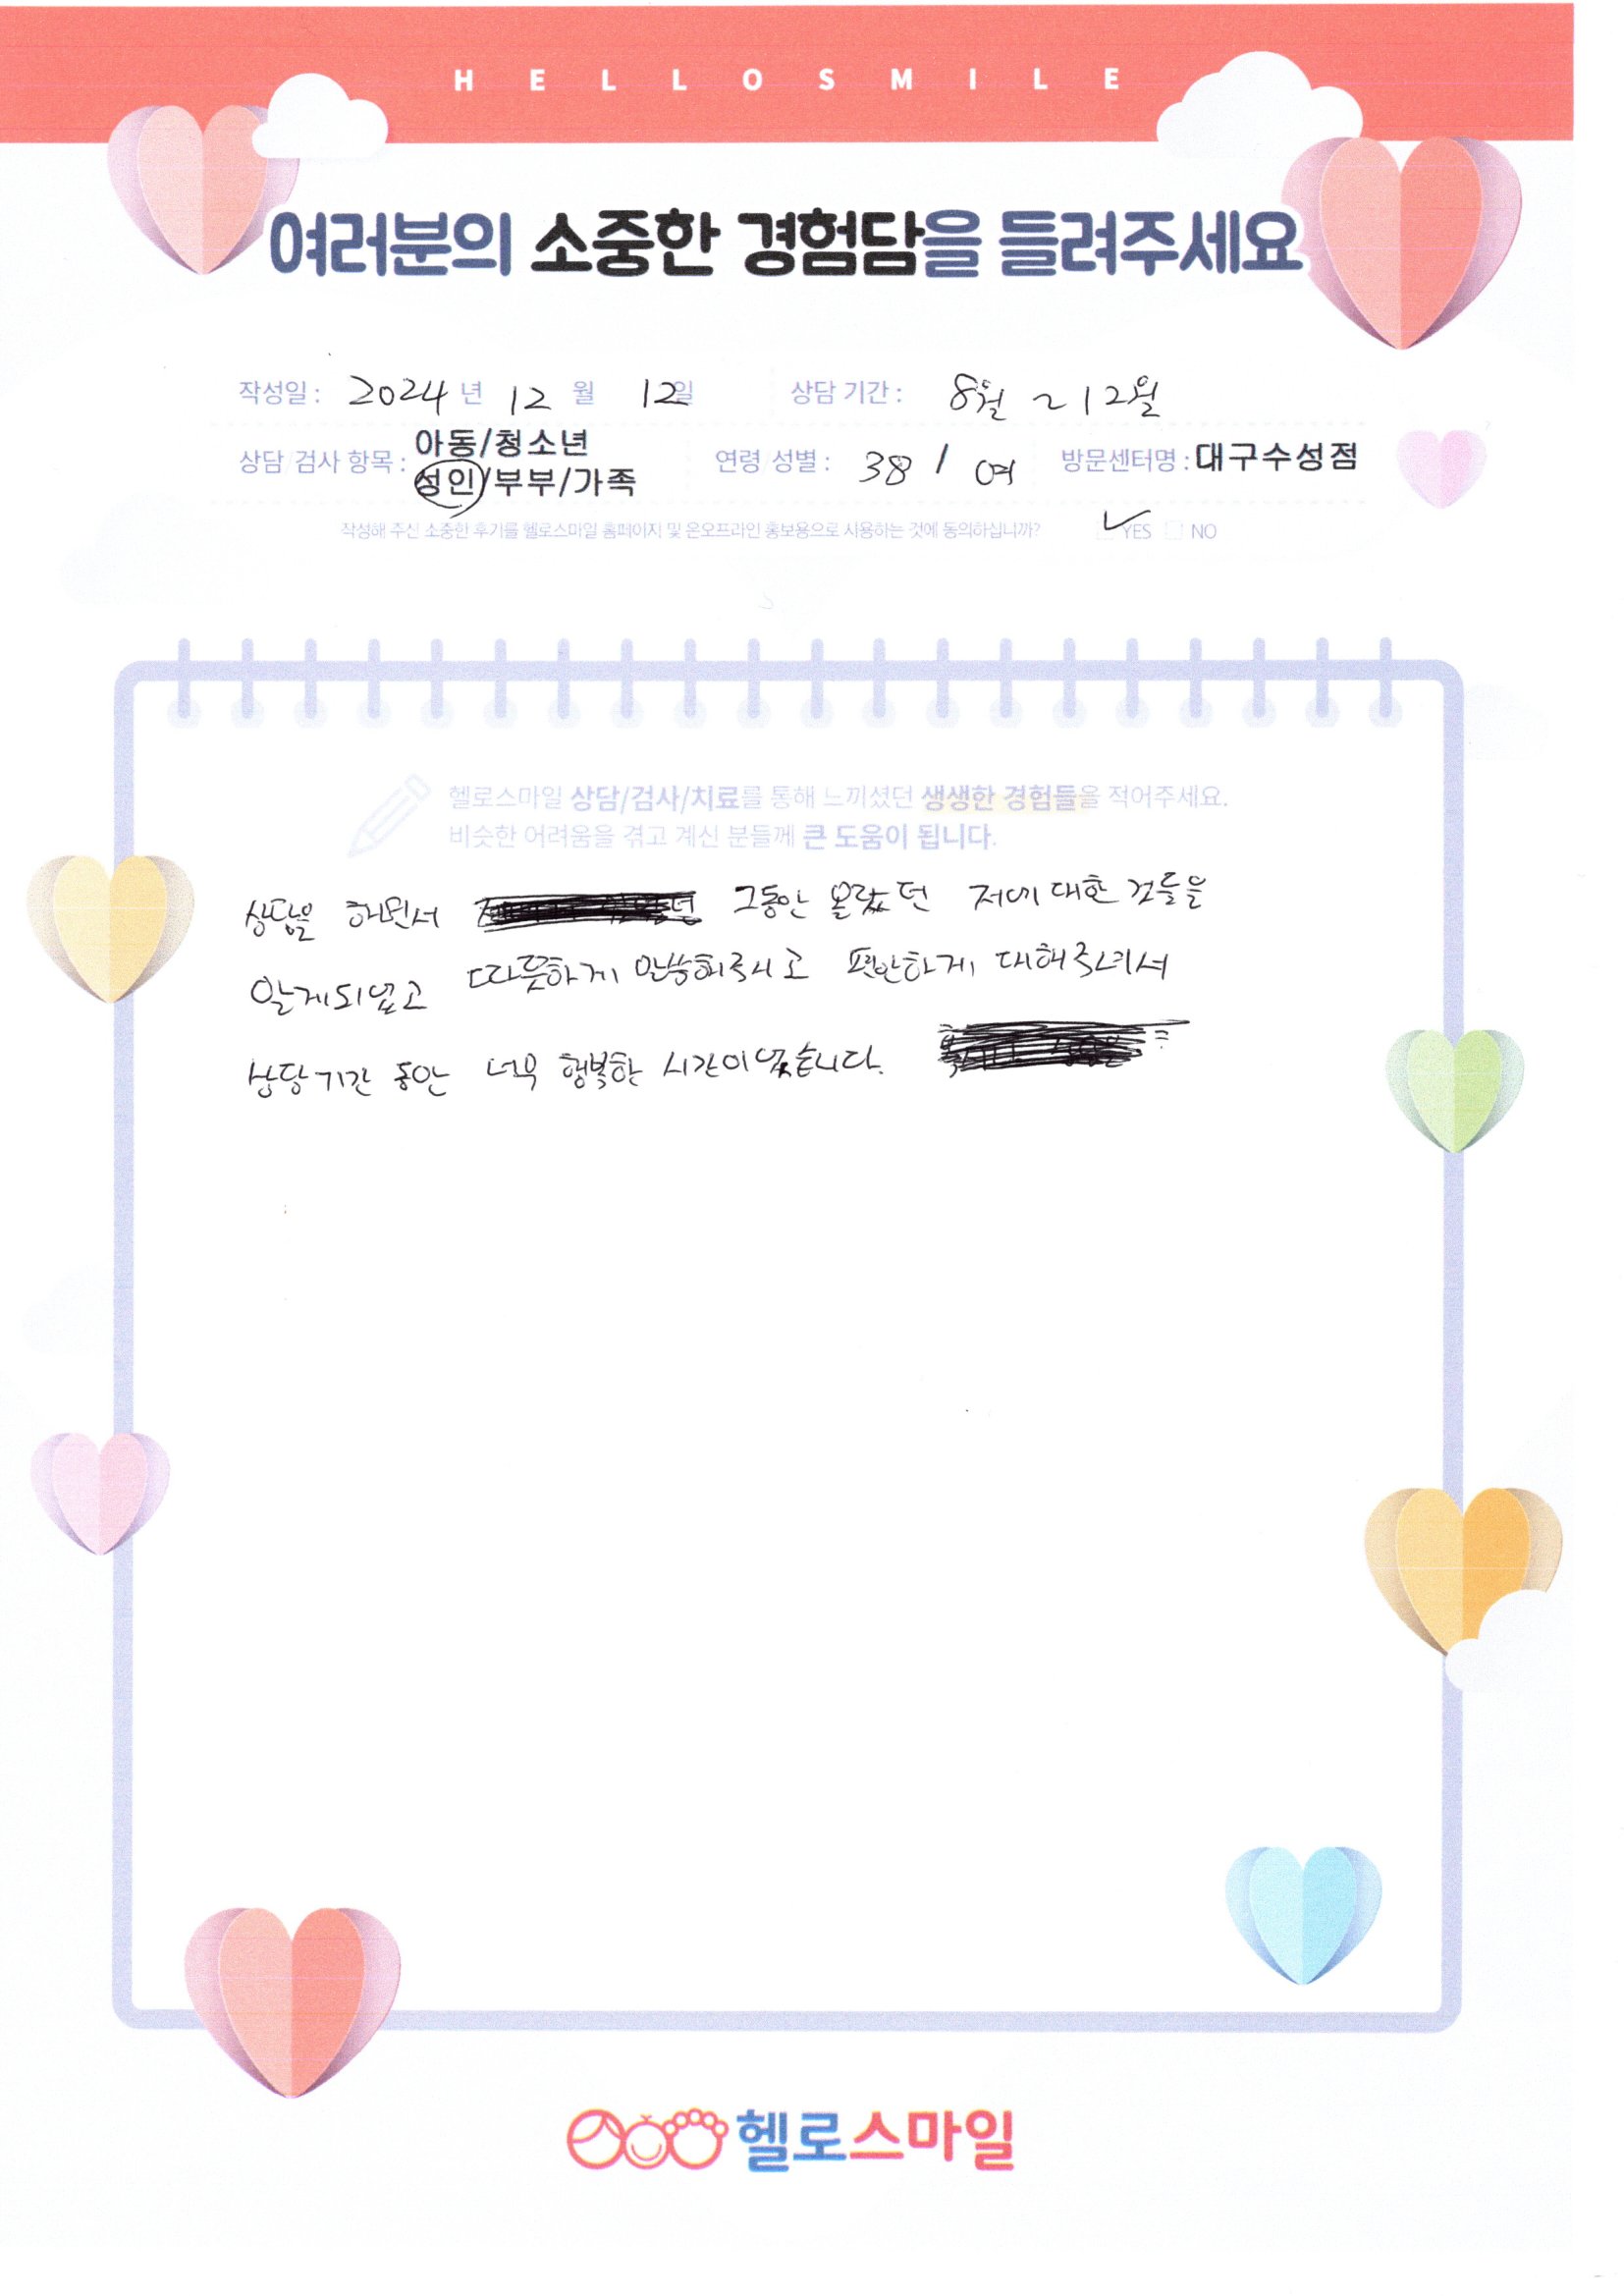 HELLOSMILE
여러분의 소중한 경험담을 들려주세요
작성일 : 2024 년 12 월 12일 상담 기간 : 8월 ~ 12월
상담 검사 항목 : 아동/청소년
성인/부부/가족
연령 성별 : 38 / 여 방문센터명 : 대구수성점
작성해 주신 소중한 후기를 헬로스마일 홈페이지 및 온오프라인 홍보용으로 사용하는 것에 동의하십니까? YES NO
헬로스마일 상담/검사/치료를 통해 느끼셨던 생생한 경험들을 적어주세요.
비슷한 어려움을 겪고 계신 분들께 큰 도움이 됩니다.
상담을 하면서 그동안 몰랐던 저에 대한 것들을
알게되었고 따뜻하게 말씀해주시고 편안하게 대해주셔서
상담기간 동안 너무 행복한 시간이었습니다.
헬로스마일